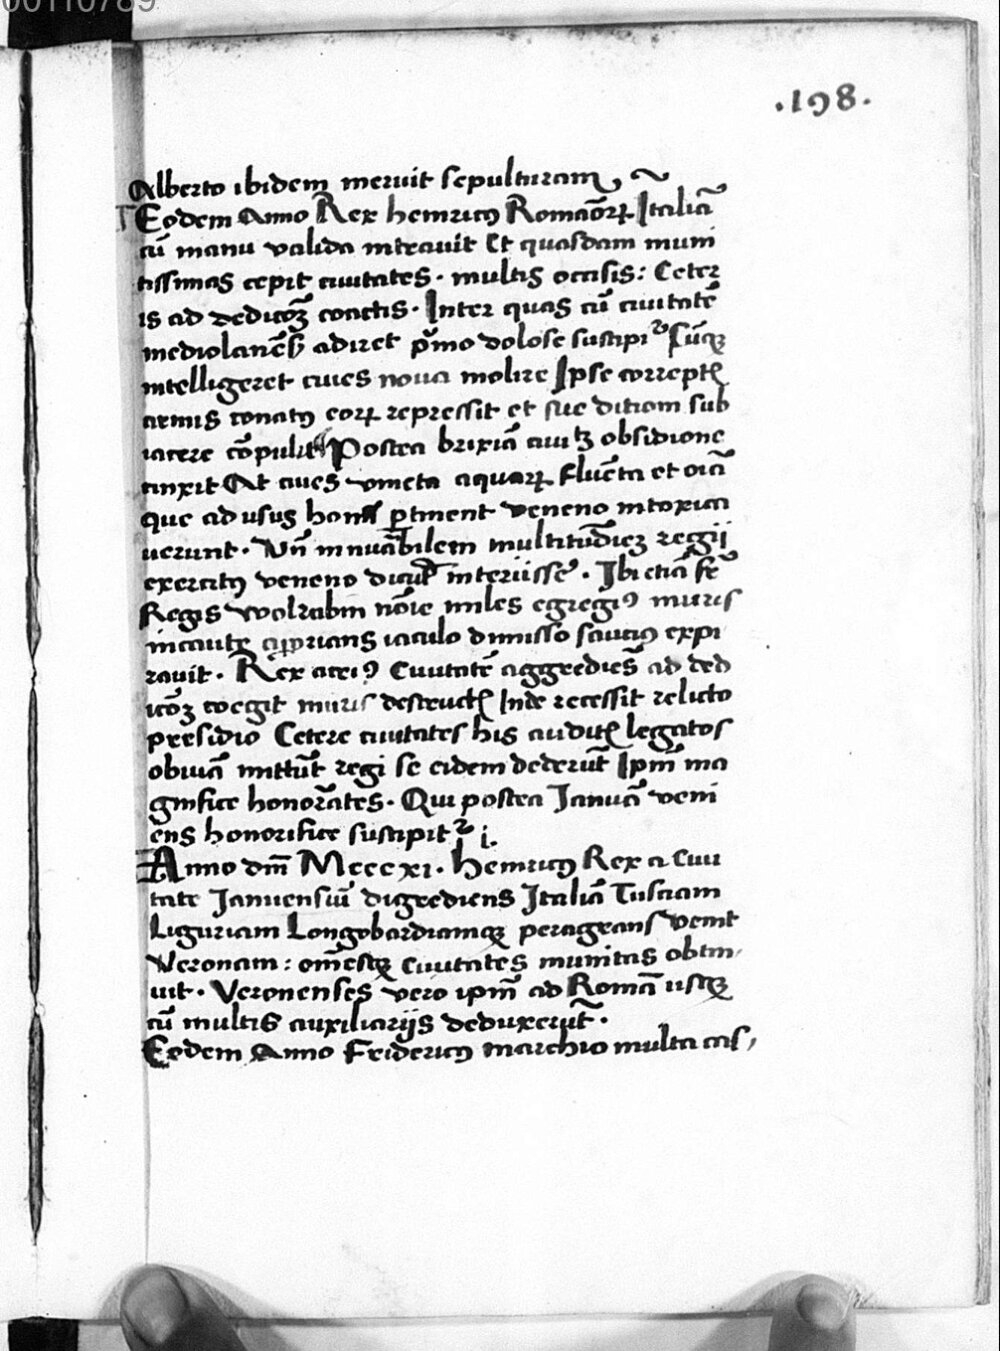 00110789
.198.
Alberto ibidem meruit sepulturam, ~
Eodem Anno Rex hemricꝰ Romaōrꝝ Italiā
cū manu valida intrauit Et quasdam muni
tissimas cepit ciuitates · multis occisis: Ceter
is ad dedicōꝫ coactis · Inter quas cū ciuitatē
mediolanēs̄ adiret pͥmo dolose suscipiᷣ Cūqꝫ
intelligeret ciues noua molire Ipse correptꝭ
armis conatꝰ eorꝝ repressit et sue ditiom sub
iacere cōpulit Postea brixiā ciuitꝫ obsidione
cinxit At ciues vineta aquarꝝ fluēta et oīā
que ad usus hom̄ ꝑtinent veneno intoxica
uerunt · Vn̄ innuāb̄ilem multitud̄iēꝫ regij
exercitꝰ veneno dicūt interiisse · Ibi etiā fr̄
Regis wolrabm noīe miles egregiꝰ muris
incaute apꝓrians iaculo dimisso sauciꝰ expi
rauit · Rex aciꝰ Ciuitatē aggrediēs ad ded
icōꝫ coegit muris destructꝭ Inde recessit relicto
presidio Cetere ciuitates his auditꝭ legatos
obuiā mittūt regi se eidem dederūt Ipm̄ ma
gnifice honorātes · Qui postea Januā veni
ens honorifice suscipitᷣ i.
Anno dn̄i Mcccxi · hemricꝰ Rex a Ciui
tate Januensiū digrediens Italiā Tusciam
Liguriam Longobardiamqꝫ peragrans venit
Veronam: om̄esqꝫ Ciuitates munitas obtin,
uit · Veronenses vero ipm̄ ad Romā usqꝫ
cū multis auxiliarijs deduxerūt ·
Eodem Anno Fridericꝰ marchio multa cas,